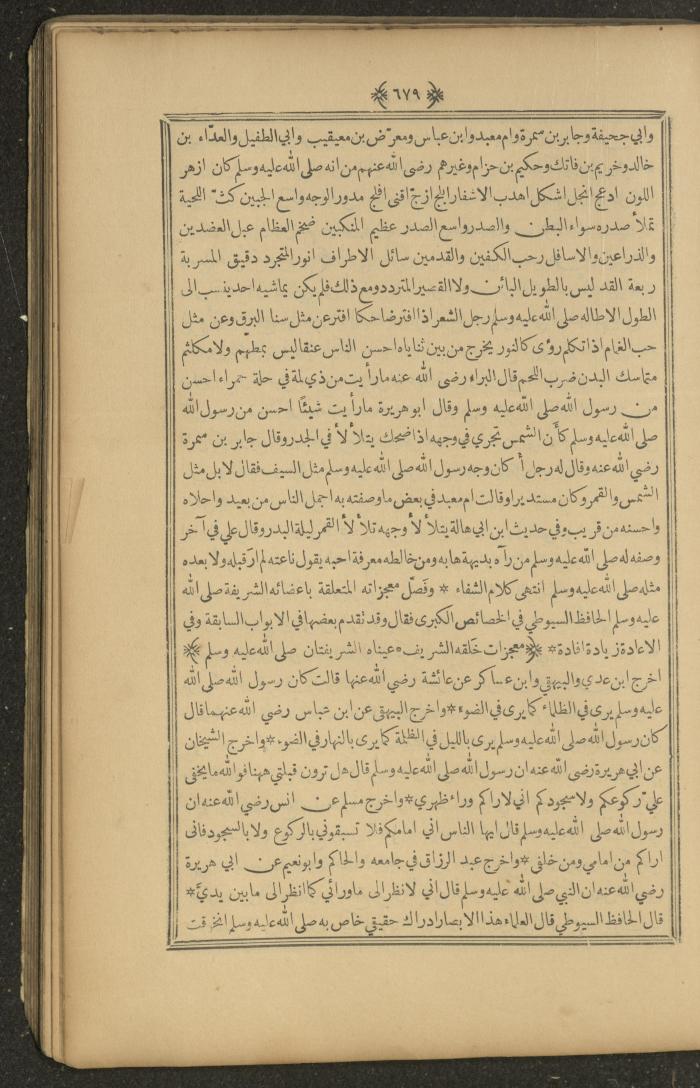 ﴿ ٦٧٩ ﴾
وابي جحيفة وجابر بن سمرة وام معبد وابن عباس ومعرّض بن معيقيب وابي الطفيل والعدّاء بن
خالد وخريم بن فاتك وحكيم بن حزام وغيرهم رضي الله عنهم من انه صلى الله عليه وسلم كان ازهر
اللون ادعج انجل اشكل اهدب الاشفار ابلج ازجّ اقنى افلج مدور الوجه واسع الجبين كثّ اللحية
تملأ صدره سواء البطن والصدر واسع الصدر عظيم المنكبين ضخم العظام عبل العضدين
والذراعين والاسافل رحب الكفين والقدمين سائل الاطراف انور المتجرد دقيق المسربة
ربعة القد ليس بالطويل البائن ولا القصير المتردد ومع ذلك فلم يكن يماشيه احد ينسب الى
الطول الا طاله صلى الله عليه وسلم رجل الشعر اذا افتر ضاحكا افتر عن مثل سنا البرق وعن مثل
حب الغمام اذا تكلم رؤى كالنور يخرج من بين ثناياه احسن الناس عنقا ليس بمطهم ولا مكلثم
متماسك البدن ضرب اللحم قال البراء رضى الله عنه ما رأيت من ذي لمة في حلة حمراء احسن
من رسول الله صلى الله عليه وسلم وقال ابو هريرة ما رأيت شيئًا احسن من رسول الله
صلى الله عليه وسلم كأن الشمس تجري في وجهه اذا ضحك يتلألأ في الجدر وقال جابر بن سمرة
رضي الله عنه وقال له رجل أ كان وجه رسول الله صلى الله عليه وسلم مثل السيف فقال لا بل مثل
الشمس والقمر وكان مستديرا وقالت ام معبد في بعض ما وصفته به اجمل الناس من بعيد واحلاه
واحسنه من قريب وفي حديث ابن ابي هالة يتلألأ وجهه تلألأ القمر ليلة البدر وقال علي في آخر
وصفه له صلى الله عليه وسلم من رآه بديهة هابه ومن خالطه معرفة احبه يقول ناعته لم ار قبله ولا بعده
مثله صلى الله عليه وسلم انتهى كلام الشفاء * وفَصّل معجزاته المتعلقة باعضائه الشريفة صلى الله
عليه وسلم الحافظ السيوطي في الخصائص الكبرى فقال وقد تقدم بعضها في الابواب السابقة وفي
الاعادة زيادة افادة * ﴿ معجزات خَلقه الشريف * عيناه الشريفتان صلى الله عليه وسلم ﴾
اخرج ابن عدي والبيهقي وابن عساكر عن عائشة رضي الله عنها قالت كان رسول الله صلى الله
عليه وسلم يرى في الظلماء كما يرى في الضوء * واخرج البيهقى عن ابن عباس رضي الله عنهما قال
كان رسول الله صلى الله عليه وسلم يرى بالليل في الظلمة كما يرى بالنهار في الضوء * واخرج الشيخان
عن ابي هريرة رضى الله عنه ان رسول الله صلى الله عليه وسلم قال هل ترون قبلتي ههنا فوالله ما يخفى
عليّ ركوعكم ولا سجودكم اني لاراكم وراء ظهري * واخرج مسلم عن انس رضي الله عنه ان
رسول الله صلى الله عليه وسلم قال ايها الناس اني امامكم فلا تسبقوني بالركوع ولا بالسجود فانى
اراكم من امامي ومن خلفي * واخرج عبد الرزاق في جامعه والحاكم وابو نعيم عن ابي هريرة
رضي الله عنه ان النبي صلى الله عليه وسلم قال اني لانظر الى ما ورائي كما انظر الى ما بين يديّ *
قال الحافظ السيوطي قال العلماء هذا الابصار ادراك حقيقي خاص به صلى الله عليه وسلم انخرقت